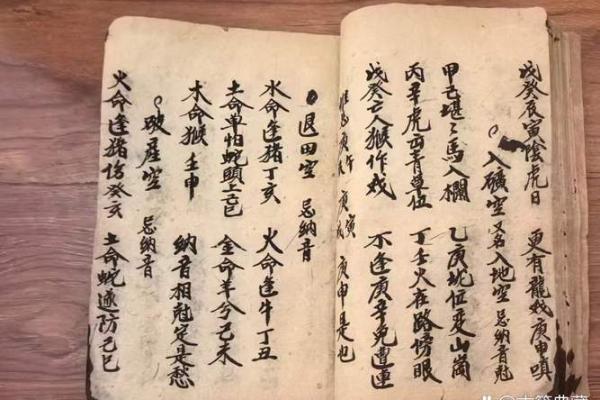 戊癸辰寅陰虎日 更有龍蛇庚申嗔
入礦空 又名入地空 忌納音尅
甲己堪々馬入欄 乙庚坎位变山崗
丙辛虎西青單位 丁壬火在路傍眼
戊癸亡人猴作戏 不逢庚辛免遭連
庚寅 庚申是也
退田空 忌納音
水命逢豬丁亥 火命逢牛丁丑
土命单怕蛇頭上乙巳 金命羊兮己未
木命猴壬申 納音相尅定是愁
破產空 忌納音
火命逢猪怕癸亥 土命蛇遂防己巳